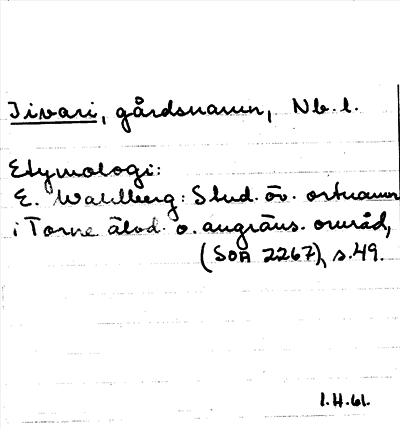 Iivari, gårdsnamn, Nb. l.
Etymologi:
E. Wahlberg: Stud. öv. ortnamn
i Torne älvd. o. angräns. område,
(SOA 2267), s. 49.
1.H.61.